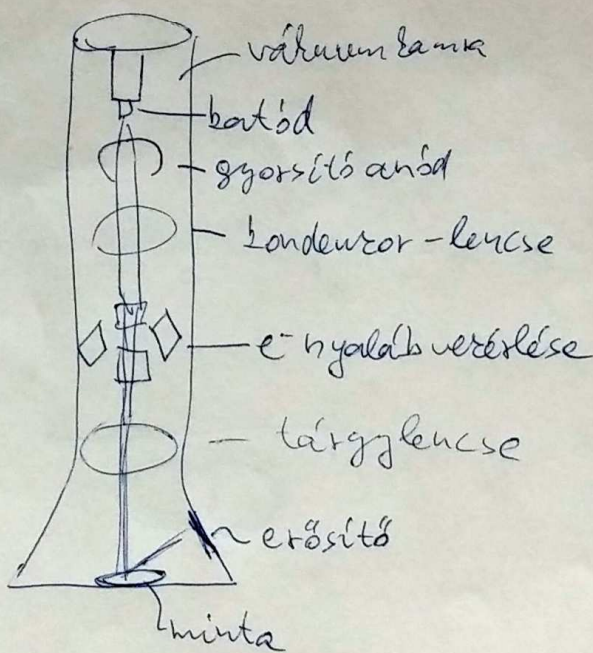 vákuumkamra
katód
gyorsító anód
kondenzor-lencse
e⁻ nyaláb vezérlése
tárgylencse
erősítő
minta